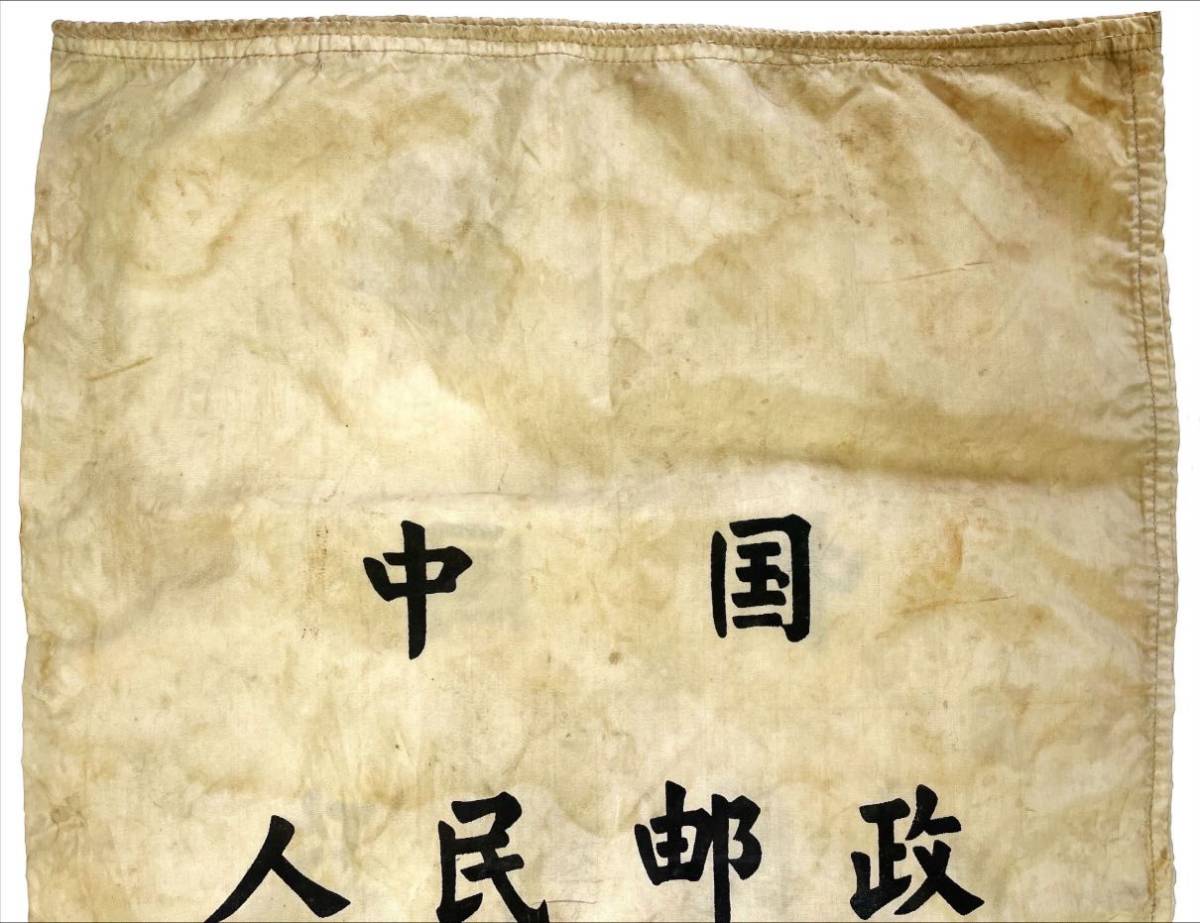 中国
人民邮政